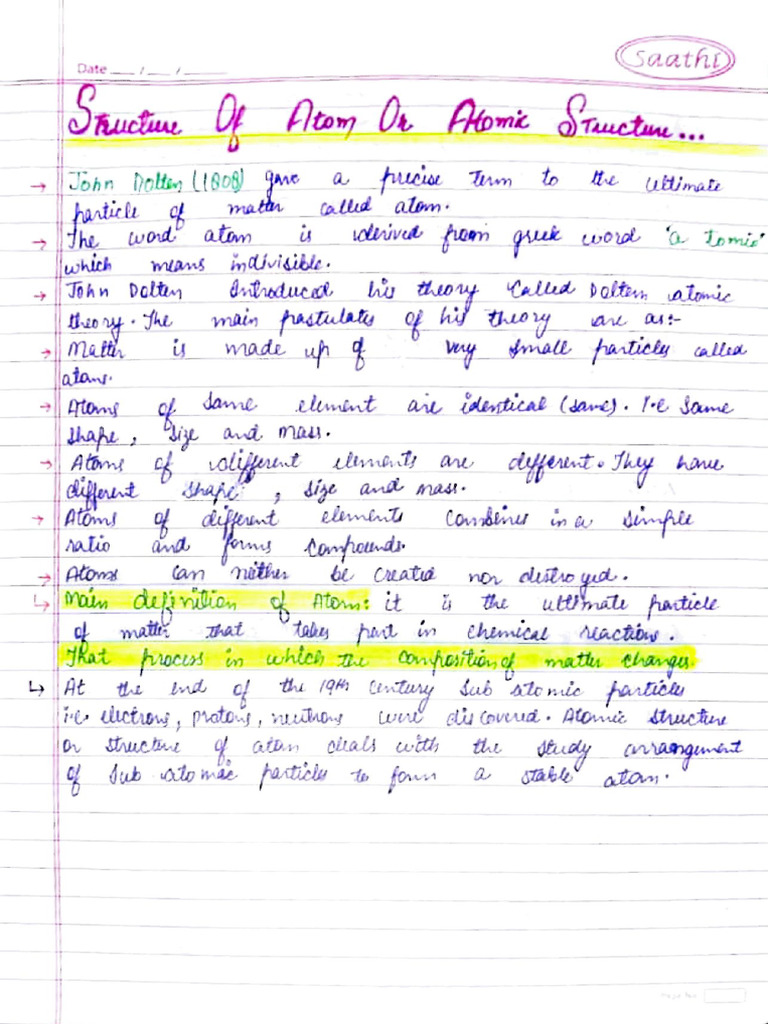 Saathi
Date ___/___/_____
Structure Of Atom Or Atomic Structure...
→ John Dolten (1808) gave a precise term to the ultimate
particle of matter called atom.
→ The word atom is derived from greek word 'a tomio'
which means indivisible.
→ John Dolten Introduced his theory called Doltens atomic
theory. The main postulates of his theory are as:-
→ Matter is made up of very small particles called
atoms.
→ Atoms of same element are identical (same). I.e same
shape, size and mass.
→ Atoms of different elements are different. They have
different shape, size and mass.
→ Atoms of different elements combines in a simple
ratio and forms compounds.
→ Atoms can neither be created nor destroyed.
↳ Main definition of Atom: it is the ultimate particle
of matter that takes part in chemical reactions.
That process in which the composition of matter changes
↳ At the end of the 19th century sub atomic particles
i.e. electrons, protons, neutrons were discovered. Atomic structure
or structure of atom deals with the study arrangement
of sub atomic particles to form a stable atom.
Page No.